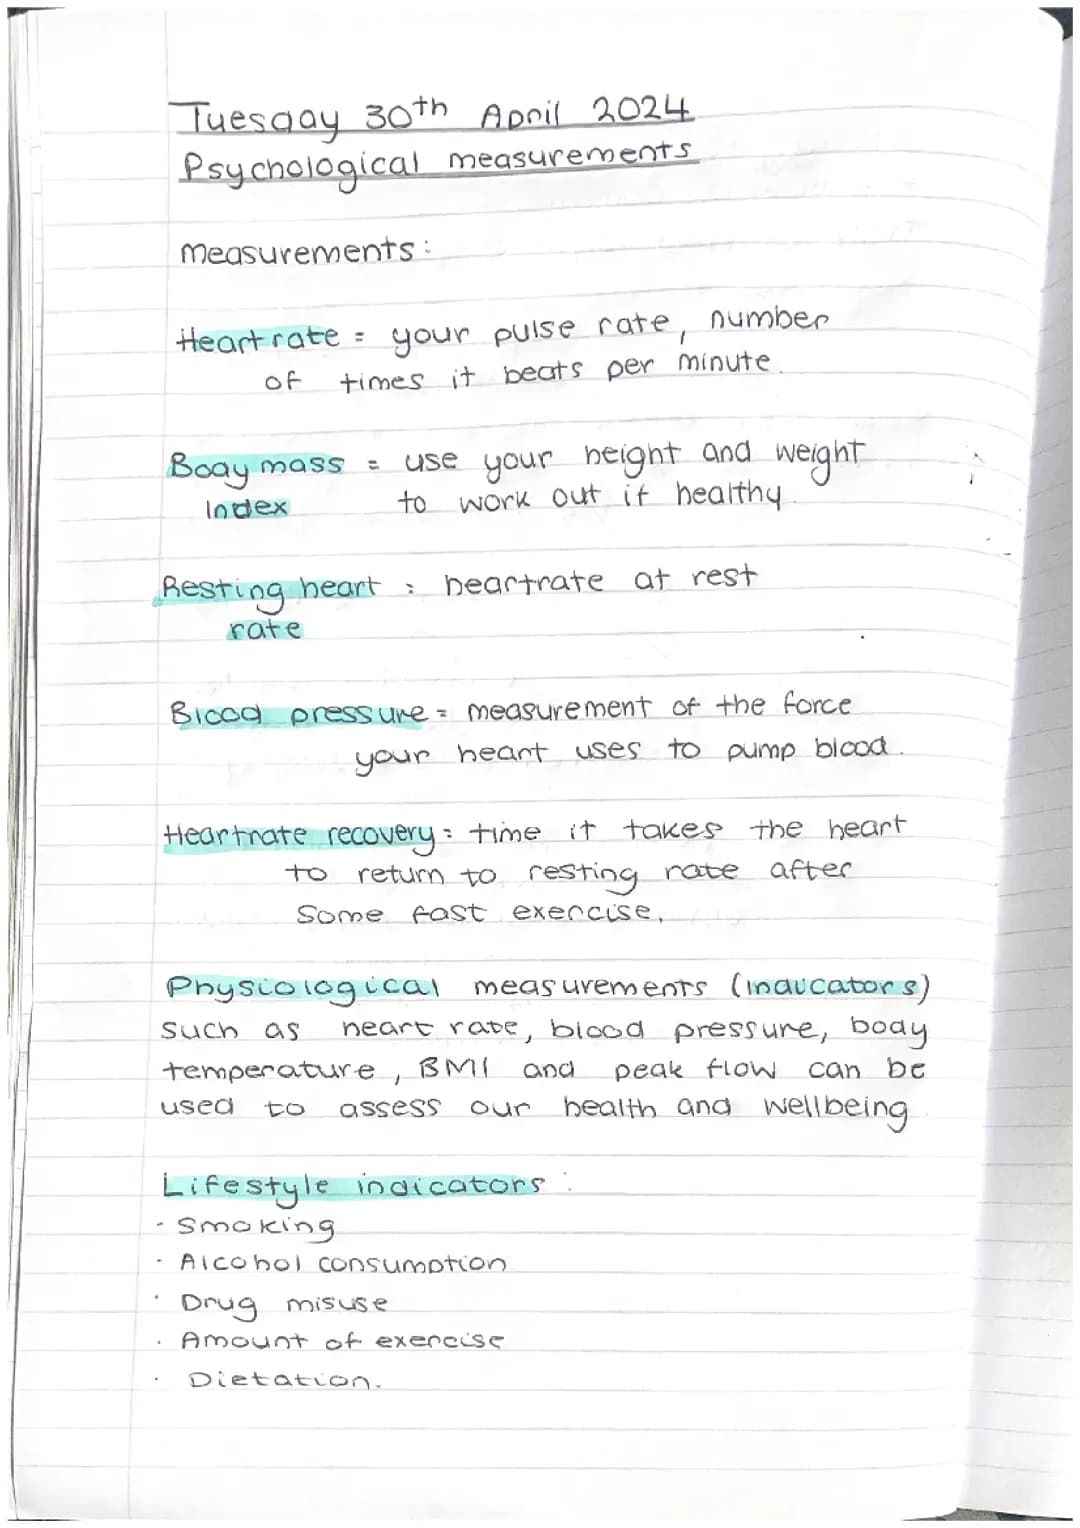 Tuesday 30th April 2024
Psychological measurements
measurements:
Heart rate = your pulse rate, number
of times it beats per minute.
Body mass = use your height and weight
Index to work out if healthy.
Resting heart : heartrate at rest
rate
Blood pressure = measurement of the force
your heart uses to pump blood.
Heartrate recovery: time it takes the heart
to return to resting rate after
Some fast exercise.
Physiological measurements (indicators)
such as heart rate, blood pressure, body
temperature, BMI and peak flow can be
used to assess our health and wellbeing
Lifestyle indicators:
· Smoking
· Alcohol consumption
· Drug misuse
· Amount of exercise
· Dietation.